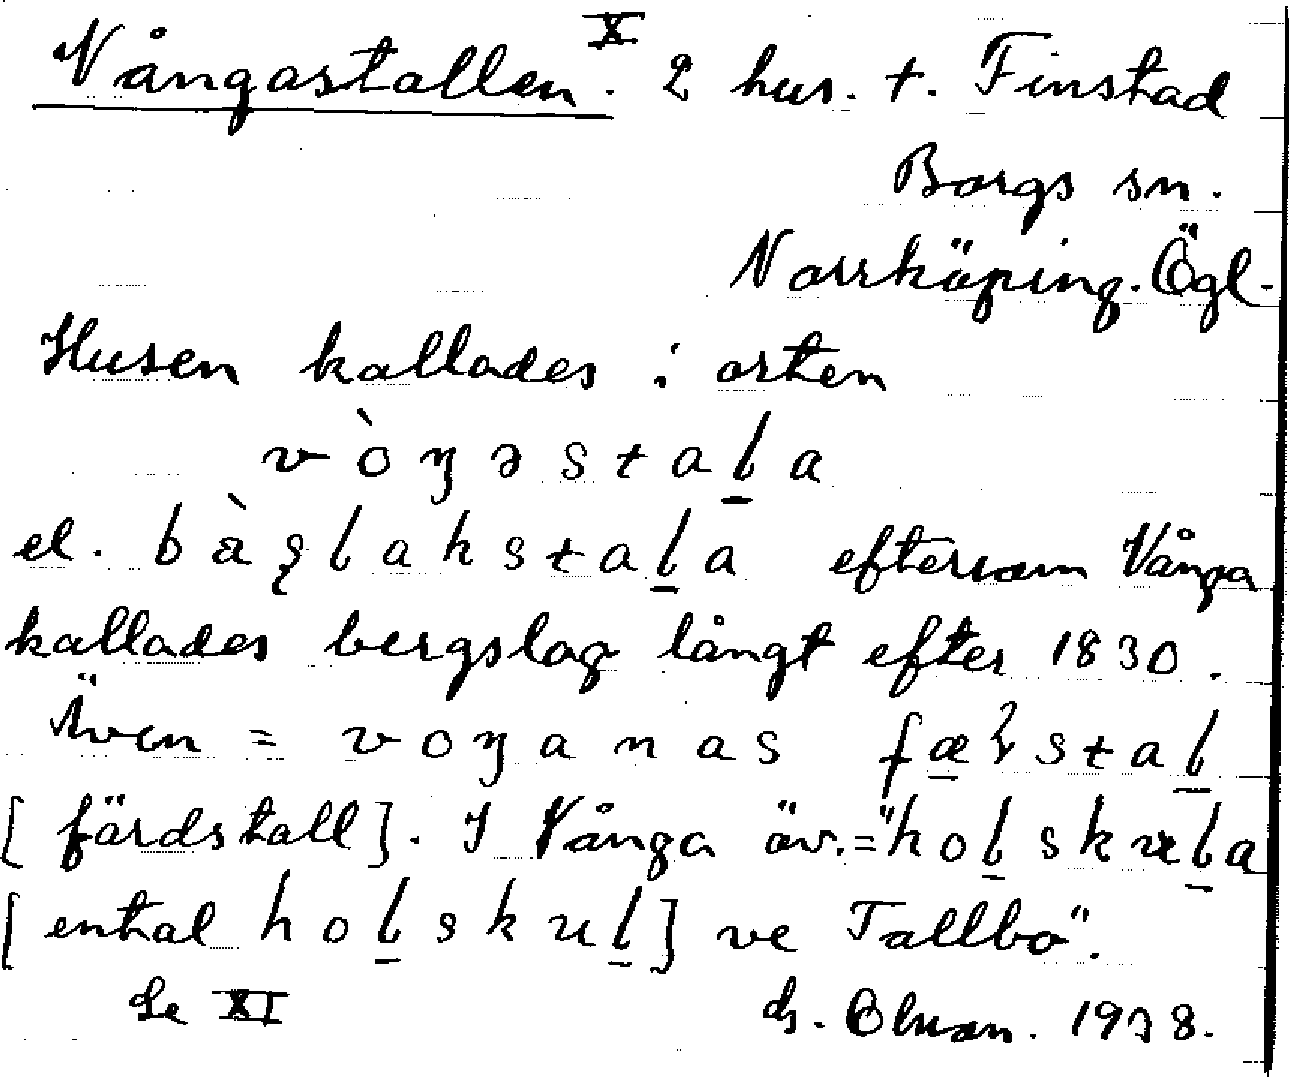 Vångastallen. X 2 hus. t. Finstad
Borgs sn.
Norrköping. Ögl.
Husen kallades i orten
vòŋəstaḷa
el. bàʂlakstaḷa eftersom Vånga
kallades bergslag långt efter 1830.
Även = voŋanas fæstaḷ
[färdstall]. I Vånga äv. = "hoḷskuḷa
[ental hoḷskuḷ] ve Tallbo".
Se XI 1938.